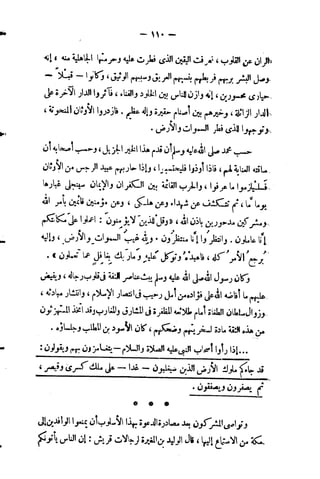 — ١١٠ —
الران عن القلوب ، نعرفت اليقين الذى فطرت عليه وحرمتها الجاهلية منه ، إنه
وصل البشر بربهم فربطهم بنسبهم العريق وسببهم الوثيق ، وكانوا — قبلاً —
حيارى محسورين ، إنه وازن للناس بين الخلود والفناء ، فآثروا الدار الآخرة على
الدار الزائلة ، وخيرهم بين أصنام حقيرة وإله عظيم . فازدروا الأوثان المنحوتة ،
وتوجهوا للذى فطر السموات والأرض .
حسب محمد صلى الله عليه وسلم أن قدم هذا الخير الجزيل ، وحسب أصحابه أن
ساقته العناية لهم ، فإذا أوذوا فليحتسبوا ، وإذا حاربهم عبيد الرجس من الأوثان
فليلزموا ما عرفوا ، والحرب القائمة بين الكفران والإيمان سينجلى غبارها
يوماً ما ، ثم تتكشف عن شهداء وعن هلكى ، وعن مؤمنين قائمين بأمر الله
ومشركين مدحورين بإذن الله ، « وقل للذين لا يؤمنون : اعملوا على مكانتكم
إنا عاملون . وانتظروا إنا منتظرون . ولله غيب السموات والأرض ، وإليه
يرجع الأمر كله ، فاعبده وتوكل عليه وما ربك بغافل عما تعملون » .
وكان رسول الله صلى الله عليه وسلم يبث عناصر الثقة فى قلوب رجاله ، ويفيض
عليهم ما أفاضه الله على فؤاده من أمل رحيب فى انتصار الإسلام ، وانتشار مبادئه ،
وزوال سلطان الطغاة أمام طلائعه المظفرة فى المشارق والمغارب وقد اتخذ المستهزئون
من هذه الثقة مادة لسخريتهم وضحكهم ، كان الأسود بن المطلب وجلساؤه .
... إذا رأوا أصحاب النبى عليه الصلاة والسلام — يتغامزون بهم ويقولون :
قد جاءكم ملوك الأرض الذين سيغلبون — غداً — على ملك كسرى وقيصر ،
ثم يصفرون ويصفقون .
* * *
وتواصى المشركون بعد مصادرة الدعوة بهذا الأسلوب أن يمنعوا الوافدين إلى
مكة من الاستماع إليها ، قال الوليد بن المغيرة لرجالات قريش : إن الناس يأتونكم